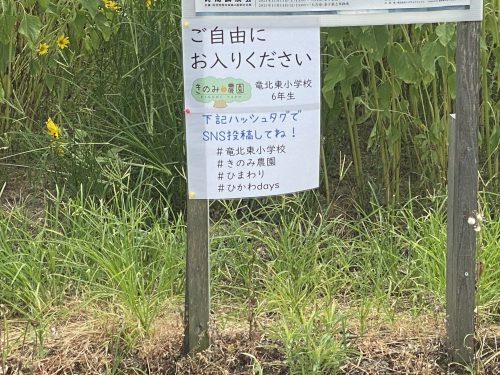 ご自由に
お入りください
きのみ農園
竜北東小学校
6年生
下記ハッシュタグで
SNS投稿してね！
#竜北東小学校
#きのみ農園
#ひまわり
#ひかわdays